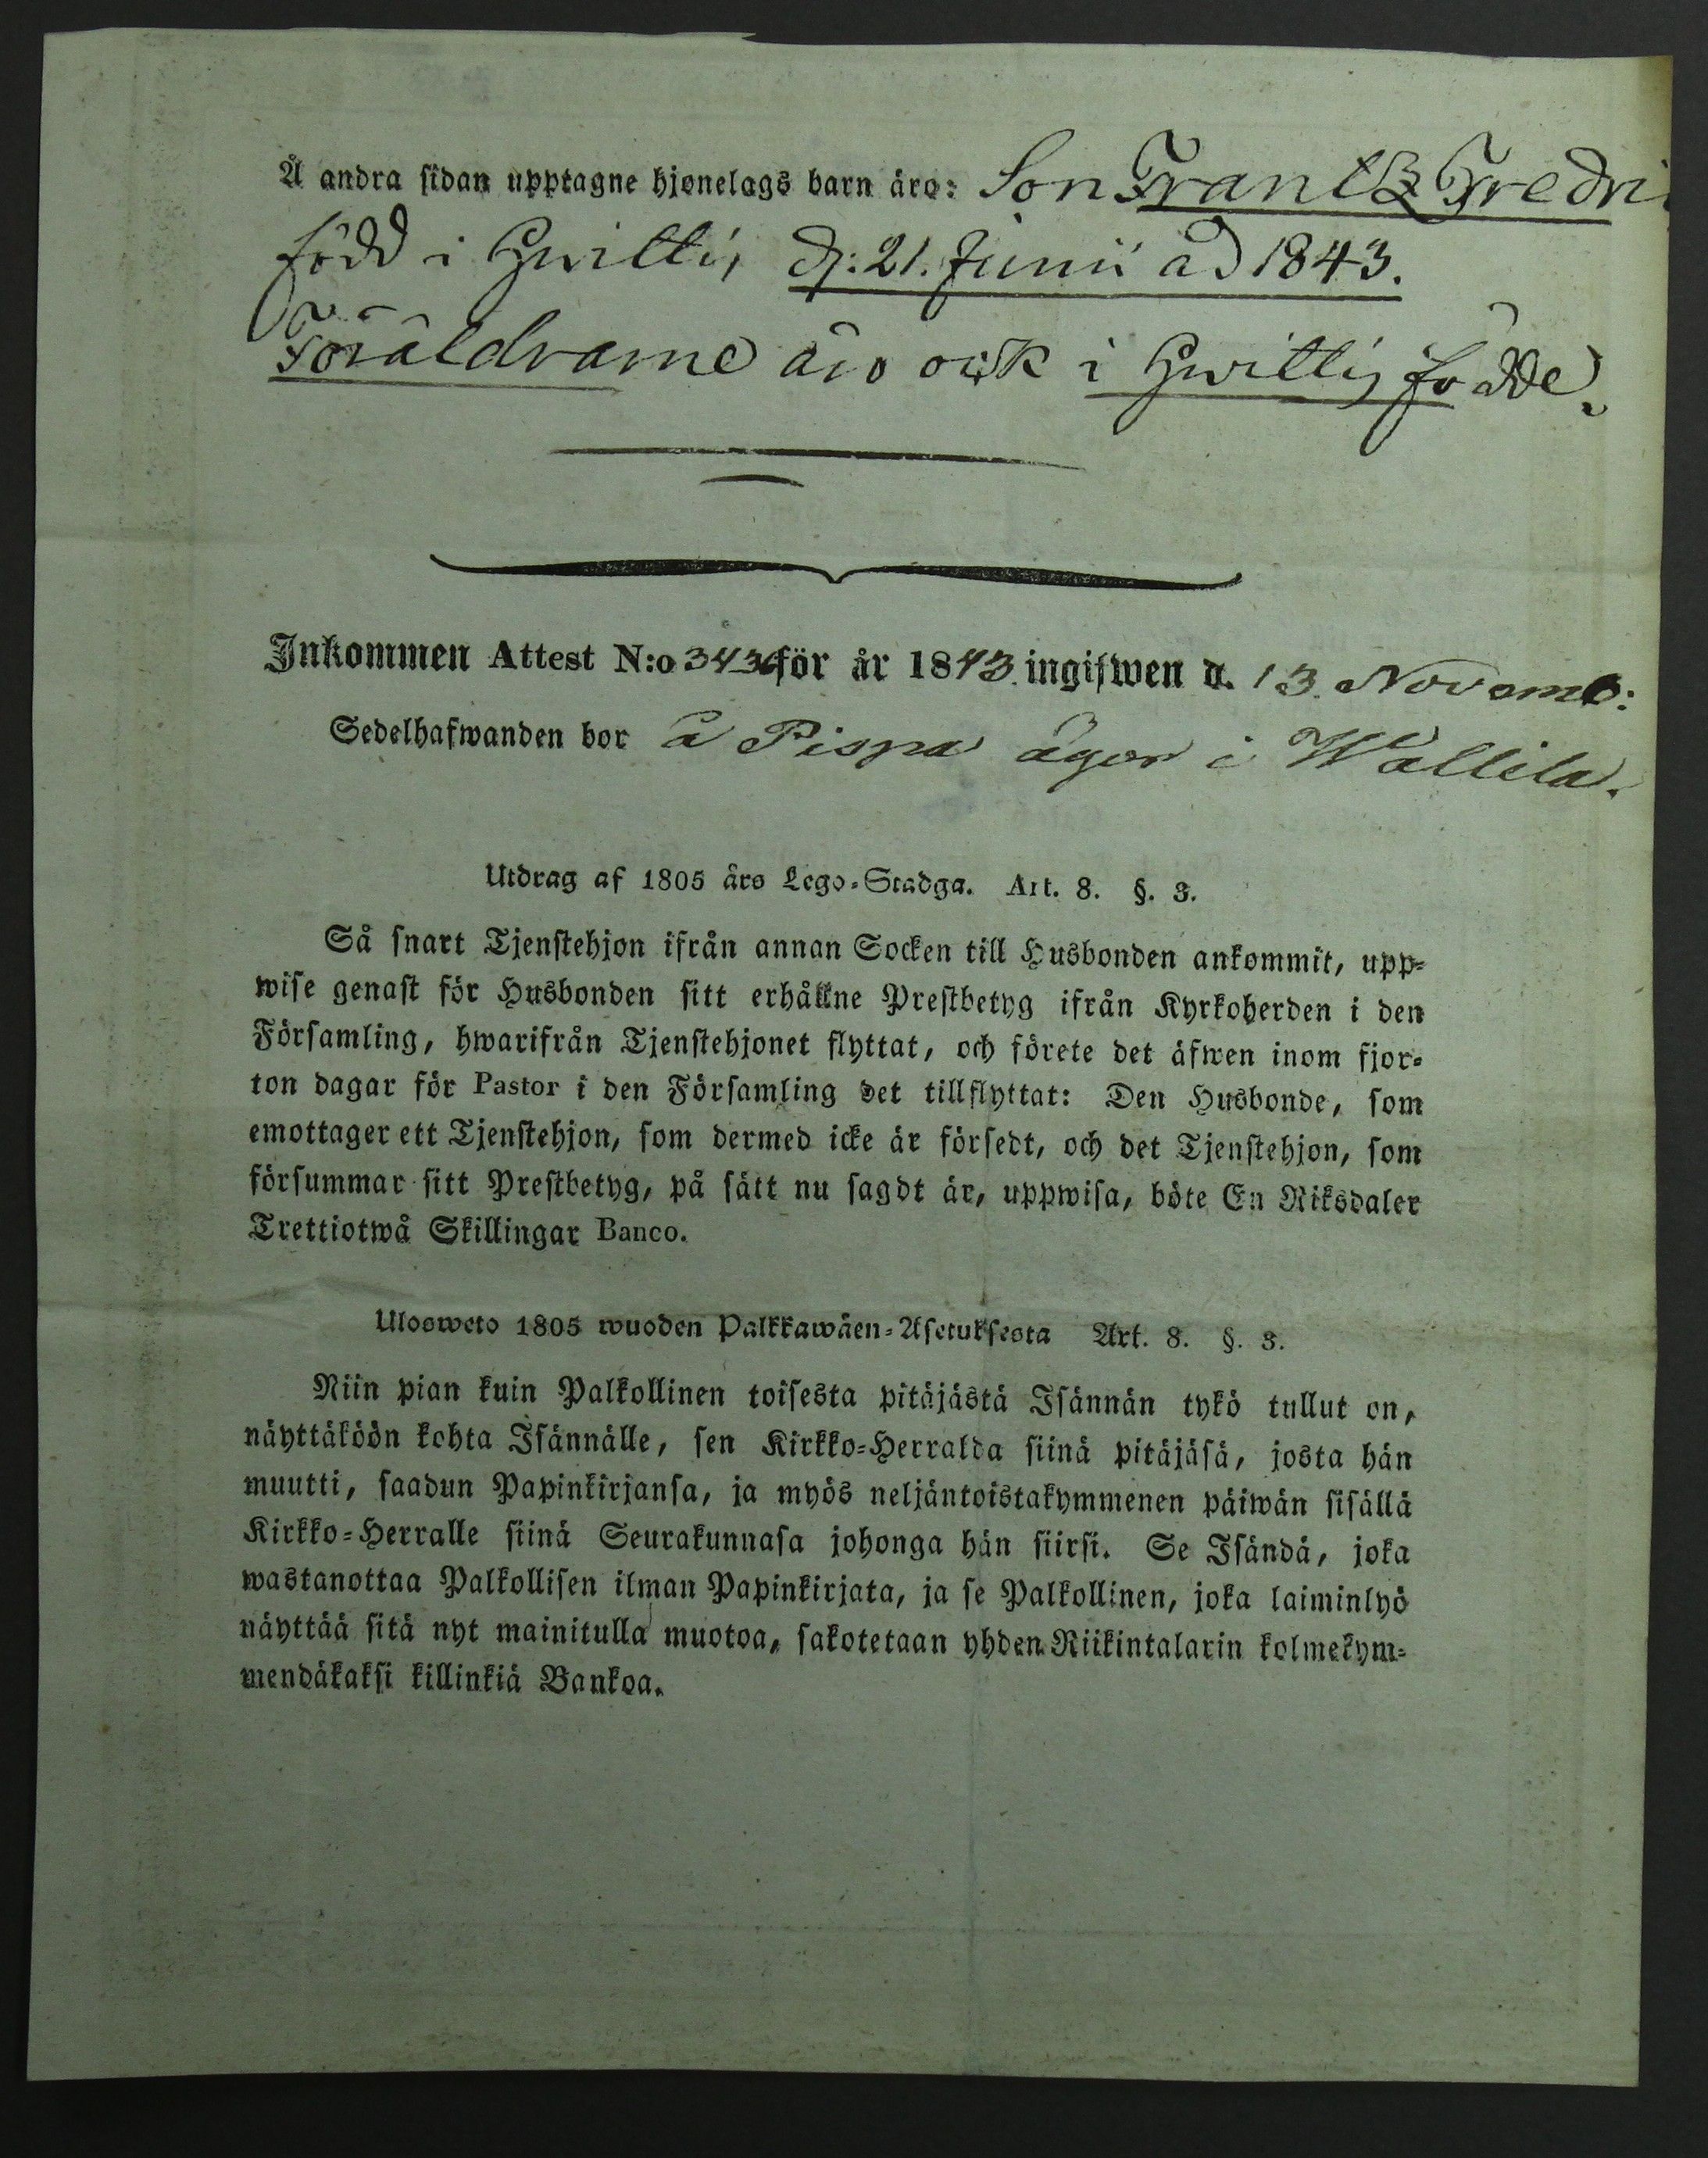 Å andra sidan upptagne hjonelags barn äro: Son Frantz Fredri
född i Hvittis d: 21. Junii åd 1843.
Föräldrarne äro ock i Hvittis födde.
Inkommen Attest N:o 343 för år 1843 ingifwen d. 13 Novemb:
Sedelhafwanden bor å Pispa ägor i Wallila.
Utdrag af 1805 års Lego-Stadga. Art. 8. §. 3.
Så snart Tjenstehjon ifrån annan Socken till Husbonden ankommit, upp-
wise genast för Husbonden sitt erhållne Prestbetyg ifrån Kyrkoherden i den
Församling, hwarifrån Tjenstehjonet flyttat, och förete det äfwen inom fjor-
ton dagar för Pastor i den Församling det tillflyttat: Den Husbonde, som
emottager ett Tjenstehjon, som dermed icke är försedt, och det Tjenstehjon, som
försummar sitt Prestbetyg, på sätt nu sagdt är, uppwisa, böte En Riksdaler
Trettiotwå Skillingar Banco.
Ulosweto 1805 wuoden Palkkawäen-Asetuksesta Art. 8. §. 3.
Niin pian kuin Palkollinen toisesta pitäjästä Isännän tykö tullut on,
näyttäköön kohta Isännälle, sen Kirkko-Herralda siinä pitäjäsä, josta hän
muutti, saadun Papinkirjansa, ja myös neljäntoistakymmenen päiwän sisällä
Kirkko-Herralle siinä Seurakunnasa johonga hän siirsi. Se Isändä, joka
wastanottaa Palkollisen ilman Papinkirjata, ja se Palkollinen, joka laiminlyö
näyttää sitä nyt mainitulla muotoa, sakotetaan yhden Riikintalarin kolmekym-
mendäkaksi killinkiä Bankoa.